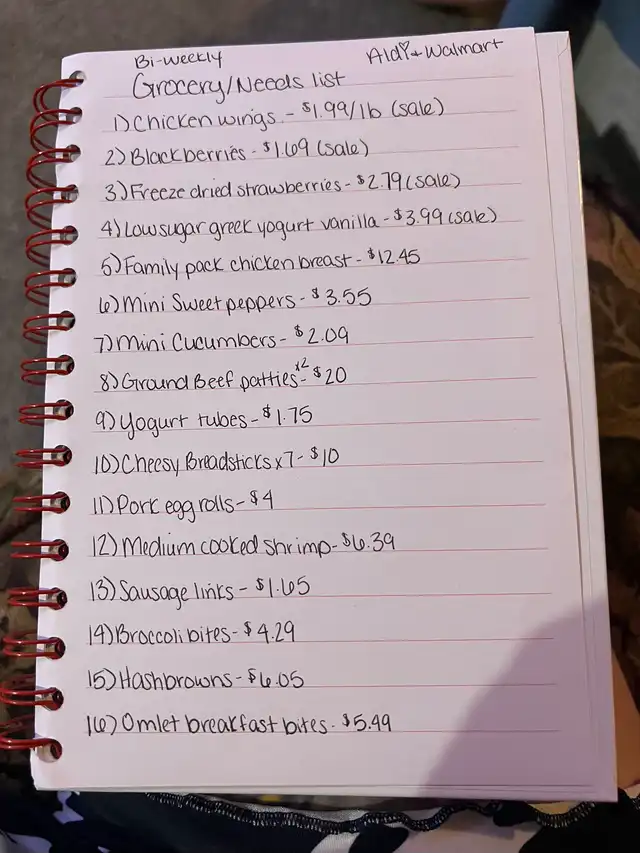 Bi-weekly
Aldi + Walmart
Grocery/Needs list
1) Chicken wings - $1.99/lb (sale)
2) Blackberries - $1.69 (sale)
3) Freeze dried strawberries - $2.79 (sale)
4) Low sugar greek yogurt vanilla - $3.99 (sale)
5) Family pack chicken breast - $12.45
6) Mini Sweet peppers - $3.55
7) Mini Cucumbers - $2.09
8) Ground Beef patties x2 - $20
9) Yogurt tubes - $1.75
10) Cheesy Breadsticks x 7 - $10
11) Pork egg rolls - $4
12) Medium cooked shrimp - $6.39
13) Sausage links - $1.65
14) Broccoli bites - $4.29
15) Hashbrowns - $6.05
16) Omlet breakfast bites - $5.49